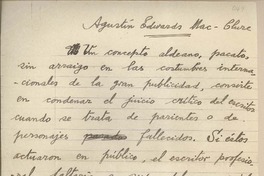 Agustín Edwards Mac-Clure
Un concepto aldeano, pacato,
sin arraigo en las costumbres interna-
cionales de la gran publicidad, consiste
en condenar el juicio crítico del escritor
cuando se trata de parientes o de
personajes fallecidos. Si éstos
actuaron en público, el escritor profesio-